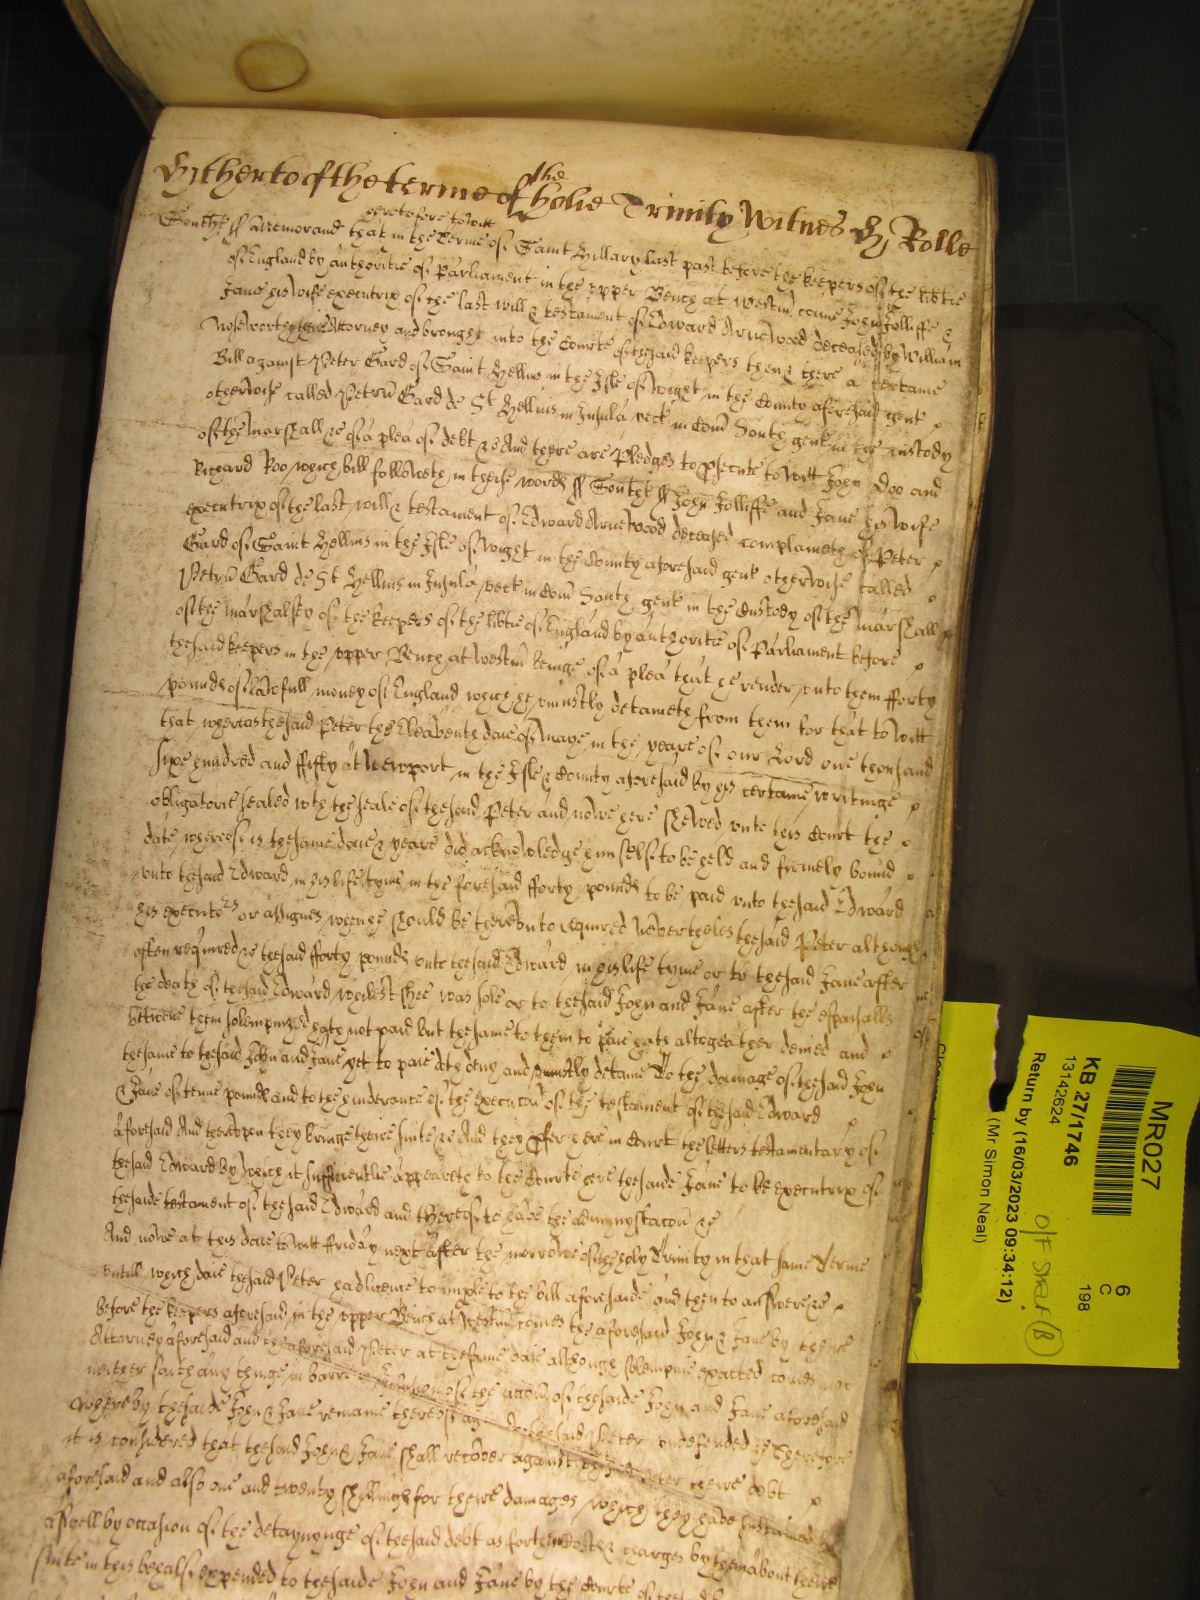 Hitherto of the terme of the holie Trinity Witnes H Rolle
South't ss Memorand that heretofore to witt in the Terme of Saint Hillary last past before the keepers of the libtie
of England by authoritie of Parliament in the vpper Bench at Westm came John Jolliffe &
Jane his wife executrix of the last will & testament of Edward Arnewood deceased by William
Noseworthy their Attorney and brought into the Courte of the said keepers then & there a certaine
Bill against Peter Gard of Saint Hellins in the Isle of Wight in the County aforesaid gent
otherwise called Petru Gard de St Hellins in Insula vect in Com South gent in the custody
of the marshall &c of a plea of debt &c And there are Pledges to psecute to witt John Doo and
Richard Roo which bill followeth in these words ss South't ss John Jolliffe and Jane his wife
executrix of the last will & testament of Edward Arnewood deceased complaineth of Peter
Gard of Saint Hellins in the Isle of Wight in the County aforesaid gent otherwise called
Petru Gard de St Hellins in Insula vect in Com South gent in the Custody of the Marshall
of the Marshalsey of the keepers of the libtie of England by authoritie of Parliament before
the said keepers in the vpper Bench at Westm beinge of a plea that he render vnto them fforty
pounds of lawfull money of England which he vniustly detaineth from them for that to witt
that whereas the said Peter the Eleaventh daie of Maye in the yeare of our Lord one thousand
sixe hundred and fifty at Newport in the Isle & County aforesaid by his certaine writinge
obligatorie sealed wth the seale of the said Peter and nowe here shewed vnto this Court the
date whereof is the same daie & yeare did acknowledge himselfe to be held and firmely bound
vnto the said Edward in his life tyme in the foresaid fforty pounds to be paid vnto the said Edward
his executors or assignes when he should be therevnto required Neverthelesse the said Peter although
often required &c the said fforty pounds vnto the said Edward in his life tyme or to the said Jane after
the death of the said Edward whilest shee was sole or to the said John and Jane after the espousalls
betweene them solempnized hath not paid but the same to them to paie hath altogeather denied and
the same to the said John and Jane yet to paie doth deny and vniustly detaine To the damage of the said John
& Jane of tenne pounds and to the hinderance of the execucon of the testament of the said Edward
aforesaid And therevpon they bringe theire suite &c And they pfer here in Court the letters testamentary of
the said Edward by which it sufficientlie appeareth to the Courte here the said Jane to be executrix of
the saide testament of the said Edward and thereof to have the admynystracon &c
And nowe at this daie to witt ffriday next after the morrowe of the holy Trinity in that same Terme
vntill which daie the said Peter had licence to imple to the bill aforesaide and then to answere &c
before the keepers aforesaid in the vpper Bench at Westm comes the aforesaid John & Jane by theire
Attorney aforesaid and the aforesaid Peter at the same daie although solempnie exacted comes not
neither saith any thinge in barre of the accon of the saide John and Jane aforesaid
whereby the saide John & Jane remaine thereof ag the said Peter vndefended &c Therefore
it is considered that the said John & Jane shall recover against the said Peter theire debt
aforesaid and also one and twenty shillings for theire damages which they have sustained
aswell by occasion of the detayninge of the said debt as for the costs & charges by them about theire
suite in this behalfe expended to the saide John and Jane by the Courte of the said
MR027
KB 27/1746
13142624
Return by (16/03/2023 09:34:12)
(Mr Simon Neal)
6
C
198